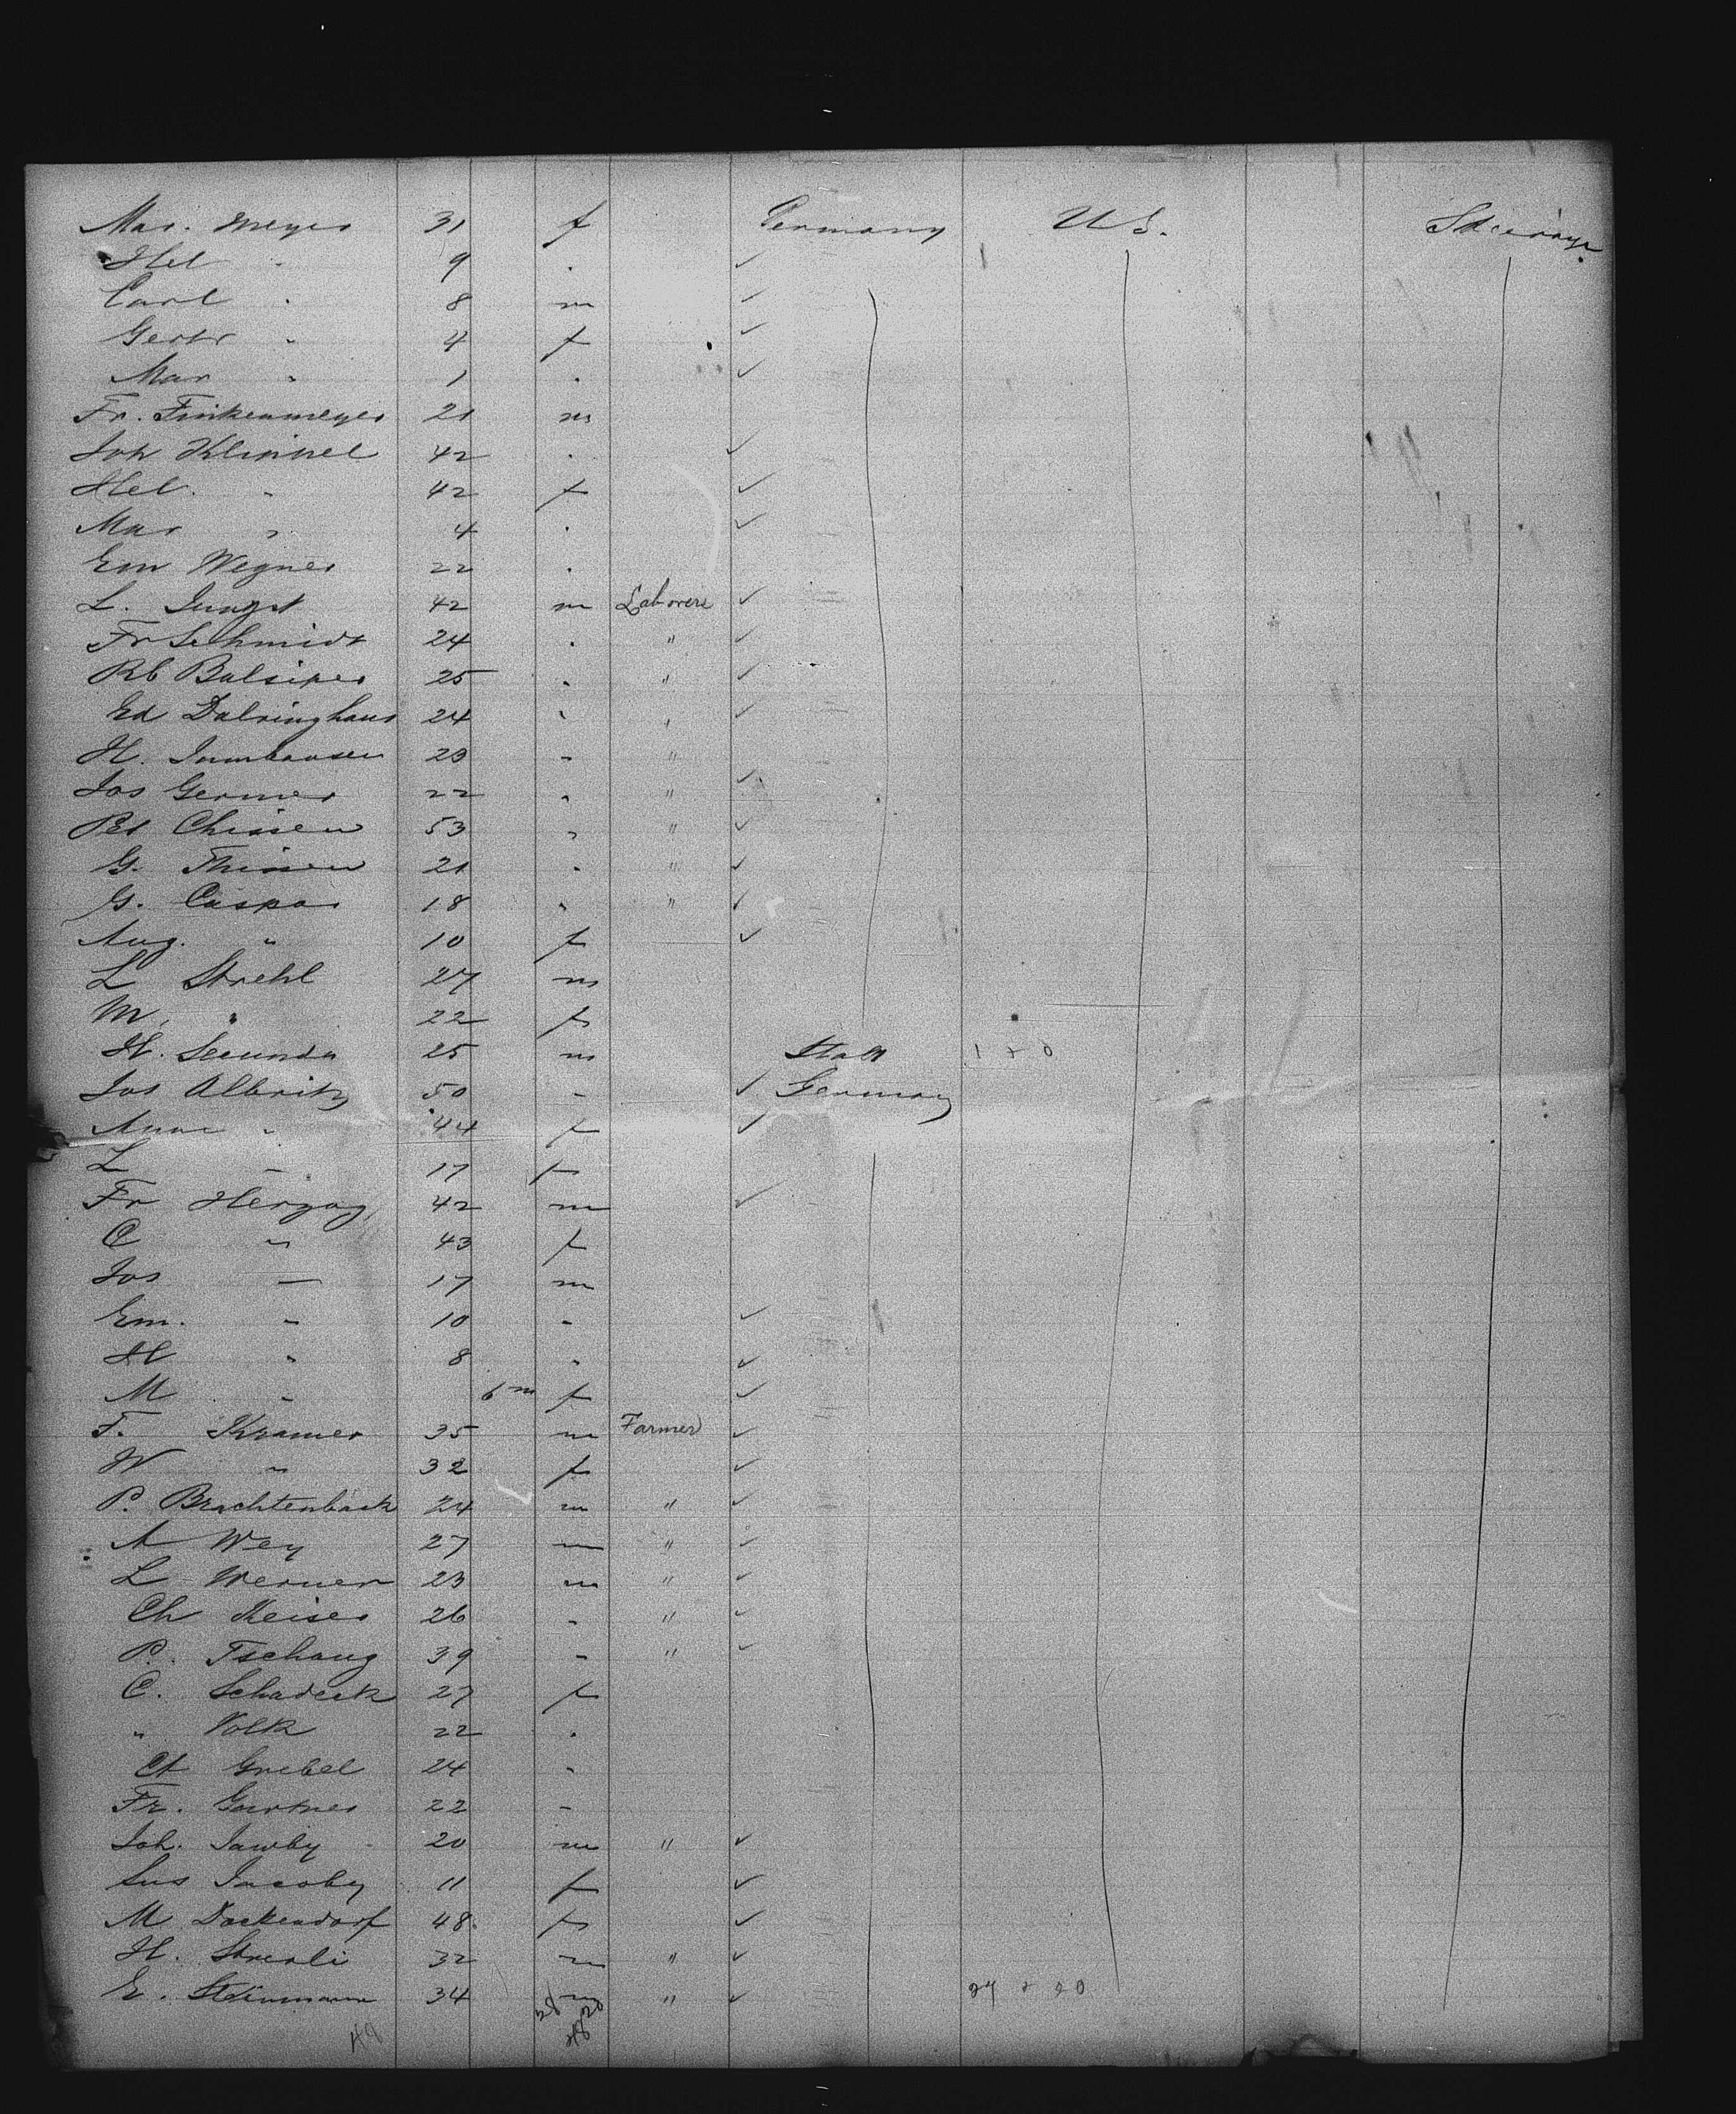 Mar. Meyer 31 f Germany U.S. Steerage
Hel " 9 "
Carl " 8 m
Gertr " 4 f
Mar " 1 "
Fr. Finkenmeyer 21 m
Joh Klinnel 42 "
Hel. " 42 f
Mar " 4 "
Em Wegner 22 "
L. Jungst 42 m Laborers
Fr Schmidt 24 " "
Rb Balsiper 25 " "
Ed Dalringhaus 24 " "
H. 23 " "
Jos Germer 22 " "
Pet Chissen 53 " "
G. Thissen 21 " "
G. Caspar 18 " "
Aug. " 10 f
L Strehl 27 m
M. " 22 f
H. Secunda 25 m Italy 1 + 0
Jos Albritz 50 " Germany
Anna " 44 f
L " 17 f
Fr Herzog 42 m
C " 43 f
Jos — 17 m
Em. " 10 "
H " 8 "
M " 6 m f
F. Kramer 35 m Farmer
W " 32 f
P. Brachtenback 24 m "
A Wey 27 m "
L Werner 23 m "
Ch Keiser 26 " "
P. Tschang 39 " "
C. Schadeck 27 f
" Volk 22 "
Ct Grebel 24 "
Fr. Gartner 22 "
Joh. Jawby 20 m "
Sus Jacoby 11 f
M Dockendorf 48 f
H. Streuli 32 m "
E. Steinmann 34 m " 27 + 20
28 20
49 48